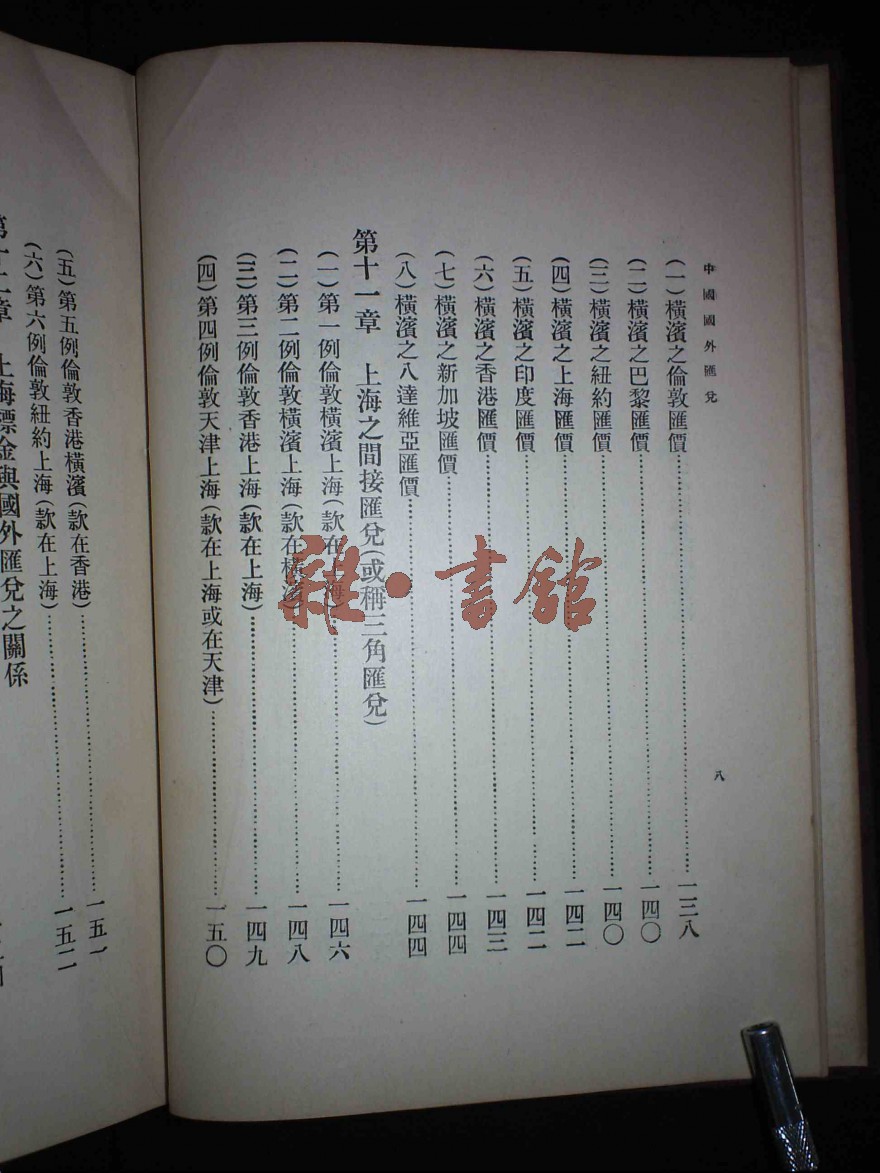 中國國外匯兌
八
(一)橫濱之倫敦匯價……一三八
(二)橫濱之巴黎匯價……一四〇
(三)橫濱之紐約匯價……一四〇
(四)橫濱之上海匯價……一四二
(五)橫濱之印度匯價……一四二
(六)橫濱之香港匯價……一四三
(七)橫濱之新加坡匯價……一四四
(八)橫濱之八達維亞匯價……一四四
第十一章 上海之間接匯兌(或稱三角匯兌)
(一)第一例倫敦橫濱上海(款在上海)……一四六
(二)第二例倫敦橫濱上海(款在橫濱)……一四八
(三)第三例倫敦香港上海(款在上海)……一四九
(四)第四例倫敦天津上海(款在上海或在天津)……一五〇
(五)第五例倫敦香港橫濱(款在香港)……一五一
(六)第六例倫敦紐約上海(款在上海)……一五二
第十二章 上海標金與國外匯兌之關係
雜·書館